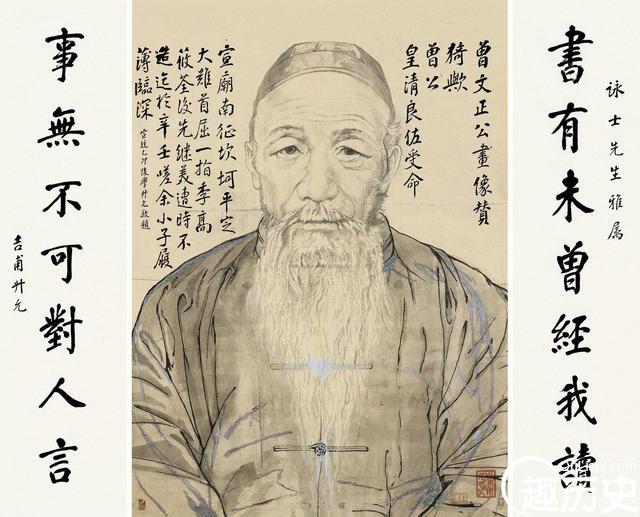 詠士先生雅属
書有未曾經我讀
曾文正公畫像贊
猗歟
曾公
皇清良佐受命
宣廟南征坎坷平定
大難首屈一指李高
筱荃後先繼美遭時不
造迄於辛壬嗟余小子履
薄臨深
宣統乙卯後學升允敬題
事無不可對人言
吉甫升允
趣历史